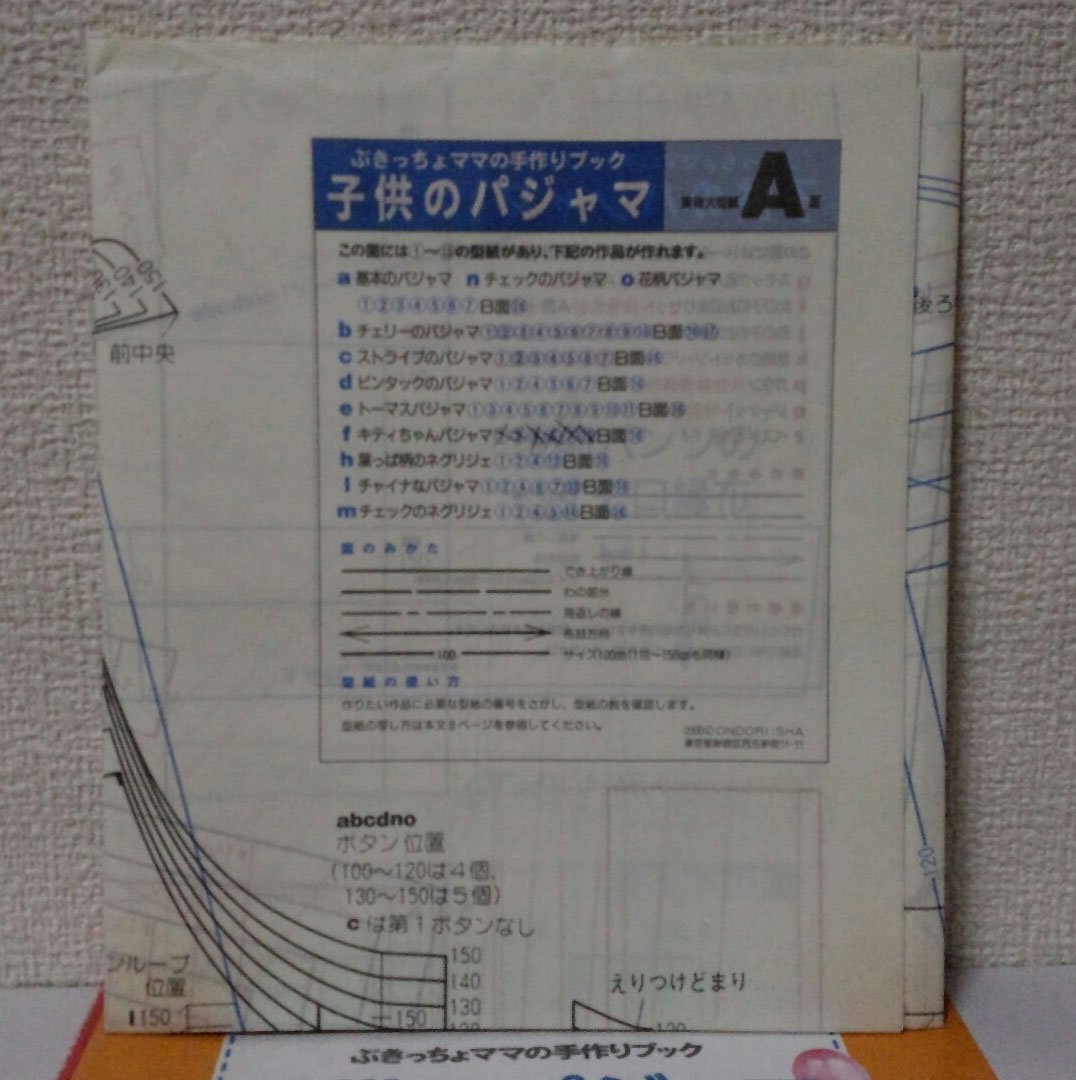 ぶきっちょママの手作りブック
子供のパジャマ
実物大型紙 A 面
この面には①〜⑮の型紙があり、下記の作品が作れます。
a 基本のパジャマ n チェックのパジャマ o 花柄パジャマ
①②③④⑤⑥⑦B面⑯
b チェリーのパジャマ①②③④⑤⑥⑦⑧⑨⑩B面⑯⑰
c ストライプのパジャマ①②③④⑤⑥⑦B面⑯
d ピンタックのパジャマ①②④⑤⑥⑦B面⑯
e トーマスパジャマ①③④⑤⑥⑦⑧⑨⑩⑪B面⑯
f キティちゃんパジャマ B面⑯
h 葉っぱ柄のネグリジェ①②④⑫B面⑯
i チャイナなパジャマ①②④⑥⑦⑬B面⑯
m チェックのネグリジェ①②④⑤⑭B面⑯
図のみかた
でき上がり線
わの部分
見返しの線
布目方向
100 サイズ100cm(110〜150cmも同様)
型紙の使い方
作りたい作品に必要な型紙の番号をさがし、型紙の数を確認します。
型紙の写し方は本文8ページを参照してください。
ONDORI SHA
東京都新宿区西五軒町11-11
150
140
130
前中央
後ろ
abcdno
ボタン位置
(100〜120は4個、
130〜150は5個)
cは第1ボタンなし
150
140
130
120
えりつけどまり
グループ
位置
150
150
120
ぶきっちょママの手作りブック